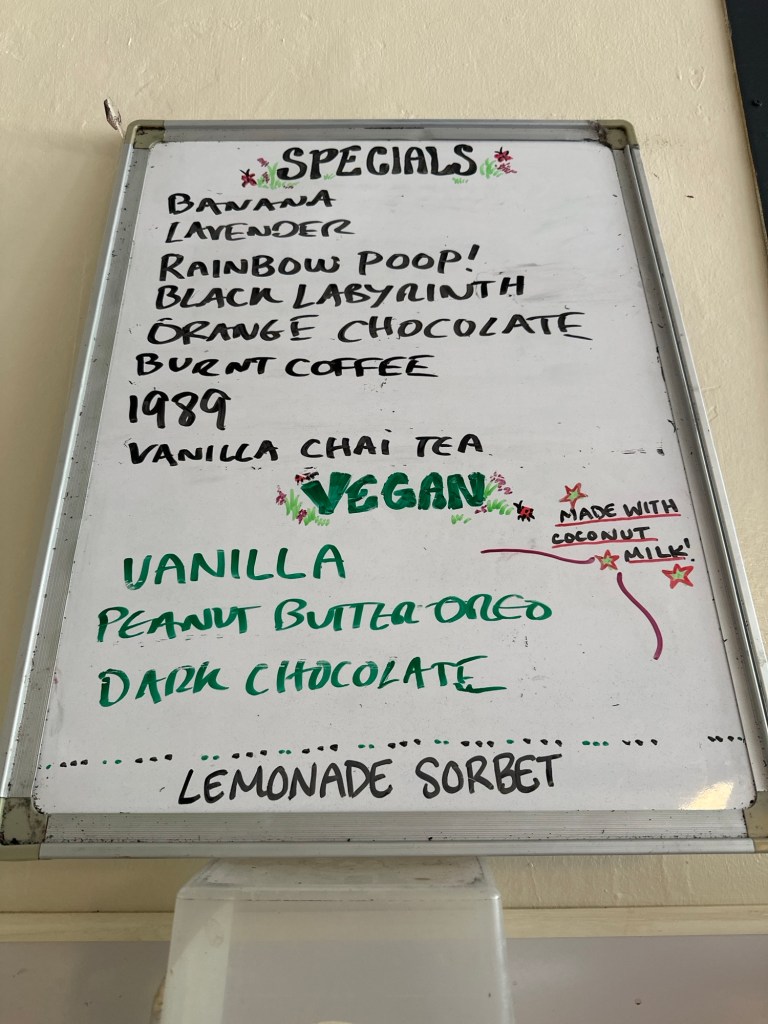 SPECIALS
BANANA
LAVENDER
RAINBOW POOP!
BLACK LABYRINTH
ORANGE CHOCOLATE
BURNT COFFEE
1989
VANILLA CHAI TEA
VEGAN
MADE WITH
COCONUT
MILK!
VANILLA
PEANUT BUTTER OREO
DARK CHOCOLATE
LEMONADE SORBET